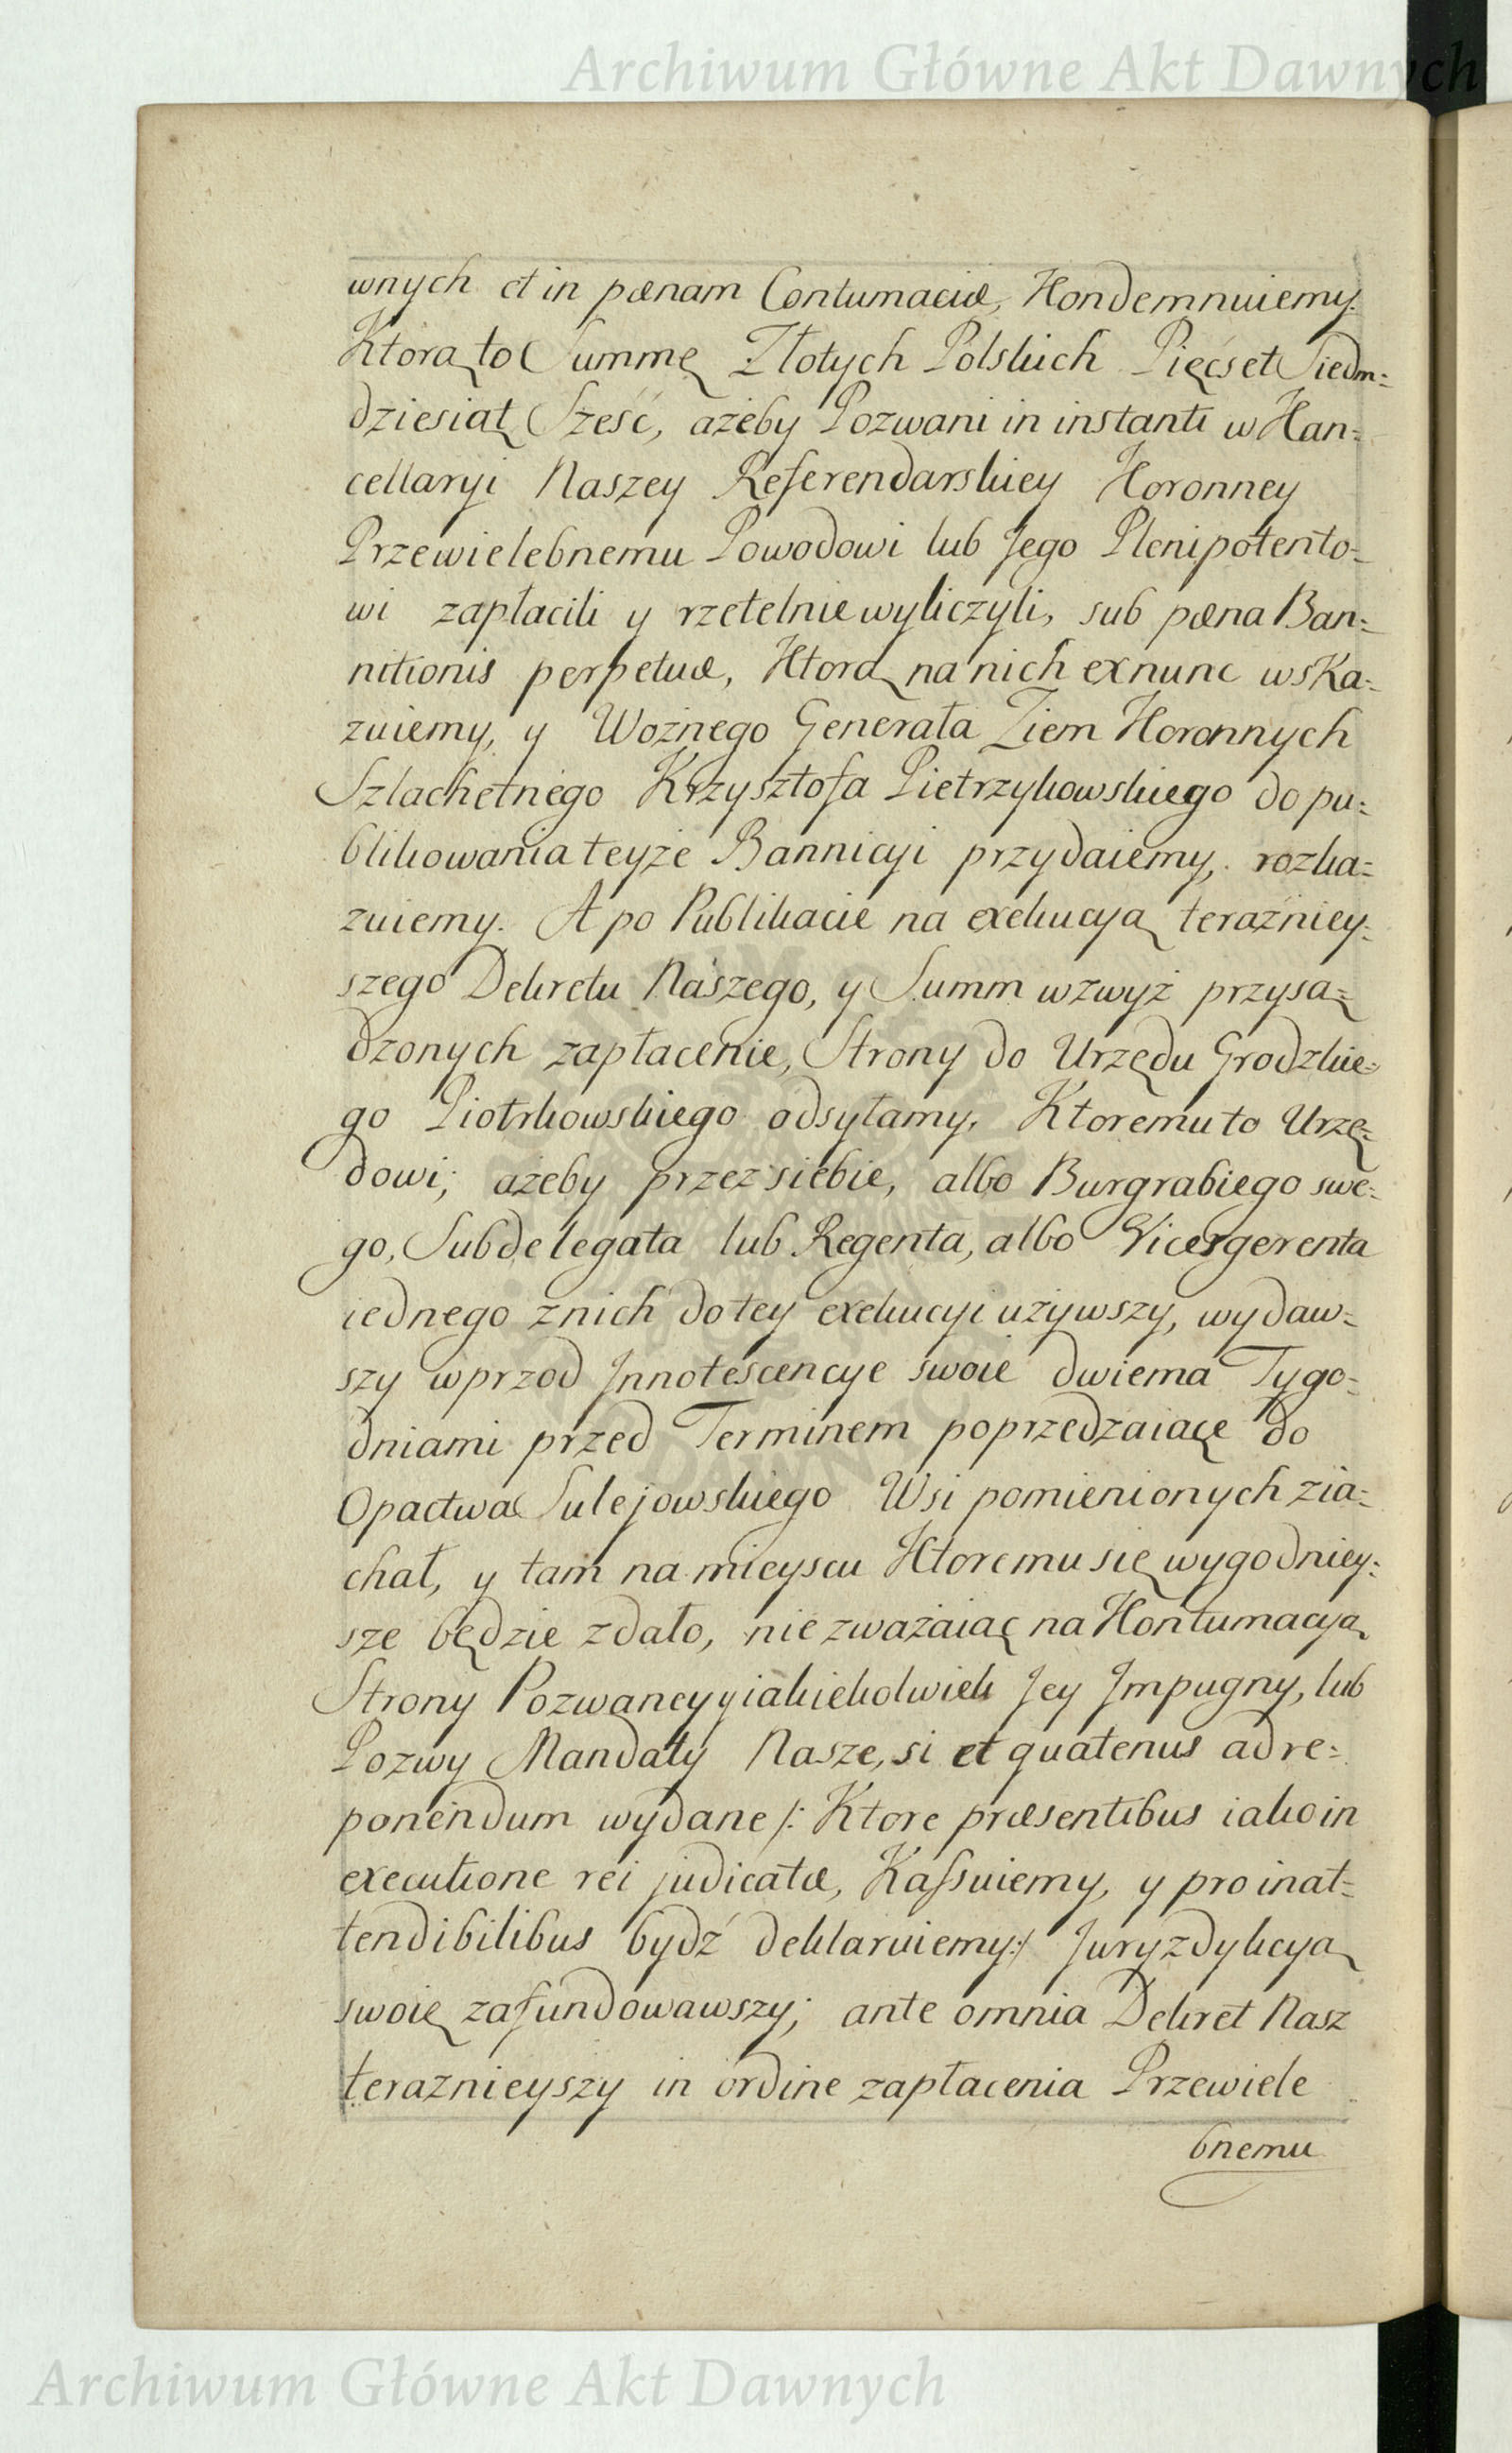 Archiwum Główne Akt Dawnych
wnych et in pœnam Contumaciæ, Kondemnuiemy.
Ktorą to Summę Złotych Polskich Pięćset Siedm=
dziesiąt Sześć, ażeby Pozwani in instanti w Kan=
cellaryi Naszey Referendarskiey Koronney
Przewielebnemu Powodowi lub Jego Plenipotento=
wi zapłacili y rzetelnie wyliczyli, sub pœna Ban=
nitionis perpetuæ, Ktorą na nich ex nunc wska=
zuiemy, y Woźnego Generała Ziem Koronnych
Szlachetnego Krzysztofa Pietrzykowskiego do pu=
blikowania teyże Bannicyi przydaiemy, rozka=
zuiemy. A po Publikacie na exekucyą teraźniey=
szego Dekretu Naszego, y Summ wzwyż przysą=
dzonych zapłacenie, Strony do Urzędu Grodzkie=
go Piotrkowskiego odsyłamy, Ktoremu to Urzę=
dowi; ażeby przez siebie, albo Burgrabiego swe=
go, Subdelegata lub Regenta, albo Vicesgerenta
iednego z nich do tey exekucyi używszy, wydaw=
szy wprzod Innotescencye swoie dwiema Tygo=
dniami przed Terminem poprzedzaiące do
Opactwa Sulejowskiego Wsi pomienionych zia=
chał, y tam na mieyscu Ktoremu się wygodniey=
sze będzie zdało, nie zważaiąc na Kontumacyą
Strony Pozwaney y iakiekolwiek Jey Impugny, lub
Pozwy Mandaty Nasze, si et quatenus ad re=
ponendum wydane /: Ktore præsentibus iako in
executione rei judicatæ, Kassuiemy, y pro inat=
tendibilibus bydź deklaruiemy :/ Juryzdykcyą
swoię zafundowawszy; ante omnia Dekret Nasz
teraznieyszy in ordine zapłacenia Przewiele
bnemu
Archiwum Główne Akt Dawnych